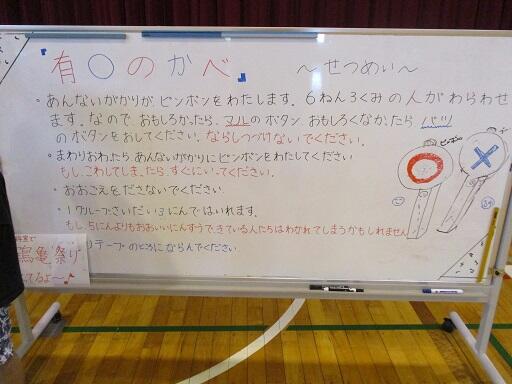 『有〇のかべ』 ～せつめい～
・あんないがかりが、ピンポンをわたします。6ねん3くみの人がわらわせ
ます。なので、おもしろかったら、マルのボタン、おもしろくなかったら バツ
のボタンをおしてください。ならしつづけないでください。
・まわりおわったら、あんないがかりにピンポンをわたしてください
もし、こわしてしまったら、すぐにいってください。
・おおごえをださないでください。
・1グループさいだい3にんではいれます。
もし、5にんよりもおおいにんずうできている人たちはわかれてしまうかもしれません
りテープのところにならんでください
ピンポン
鶴亀祭り
てるよ～♪